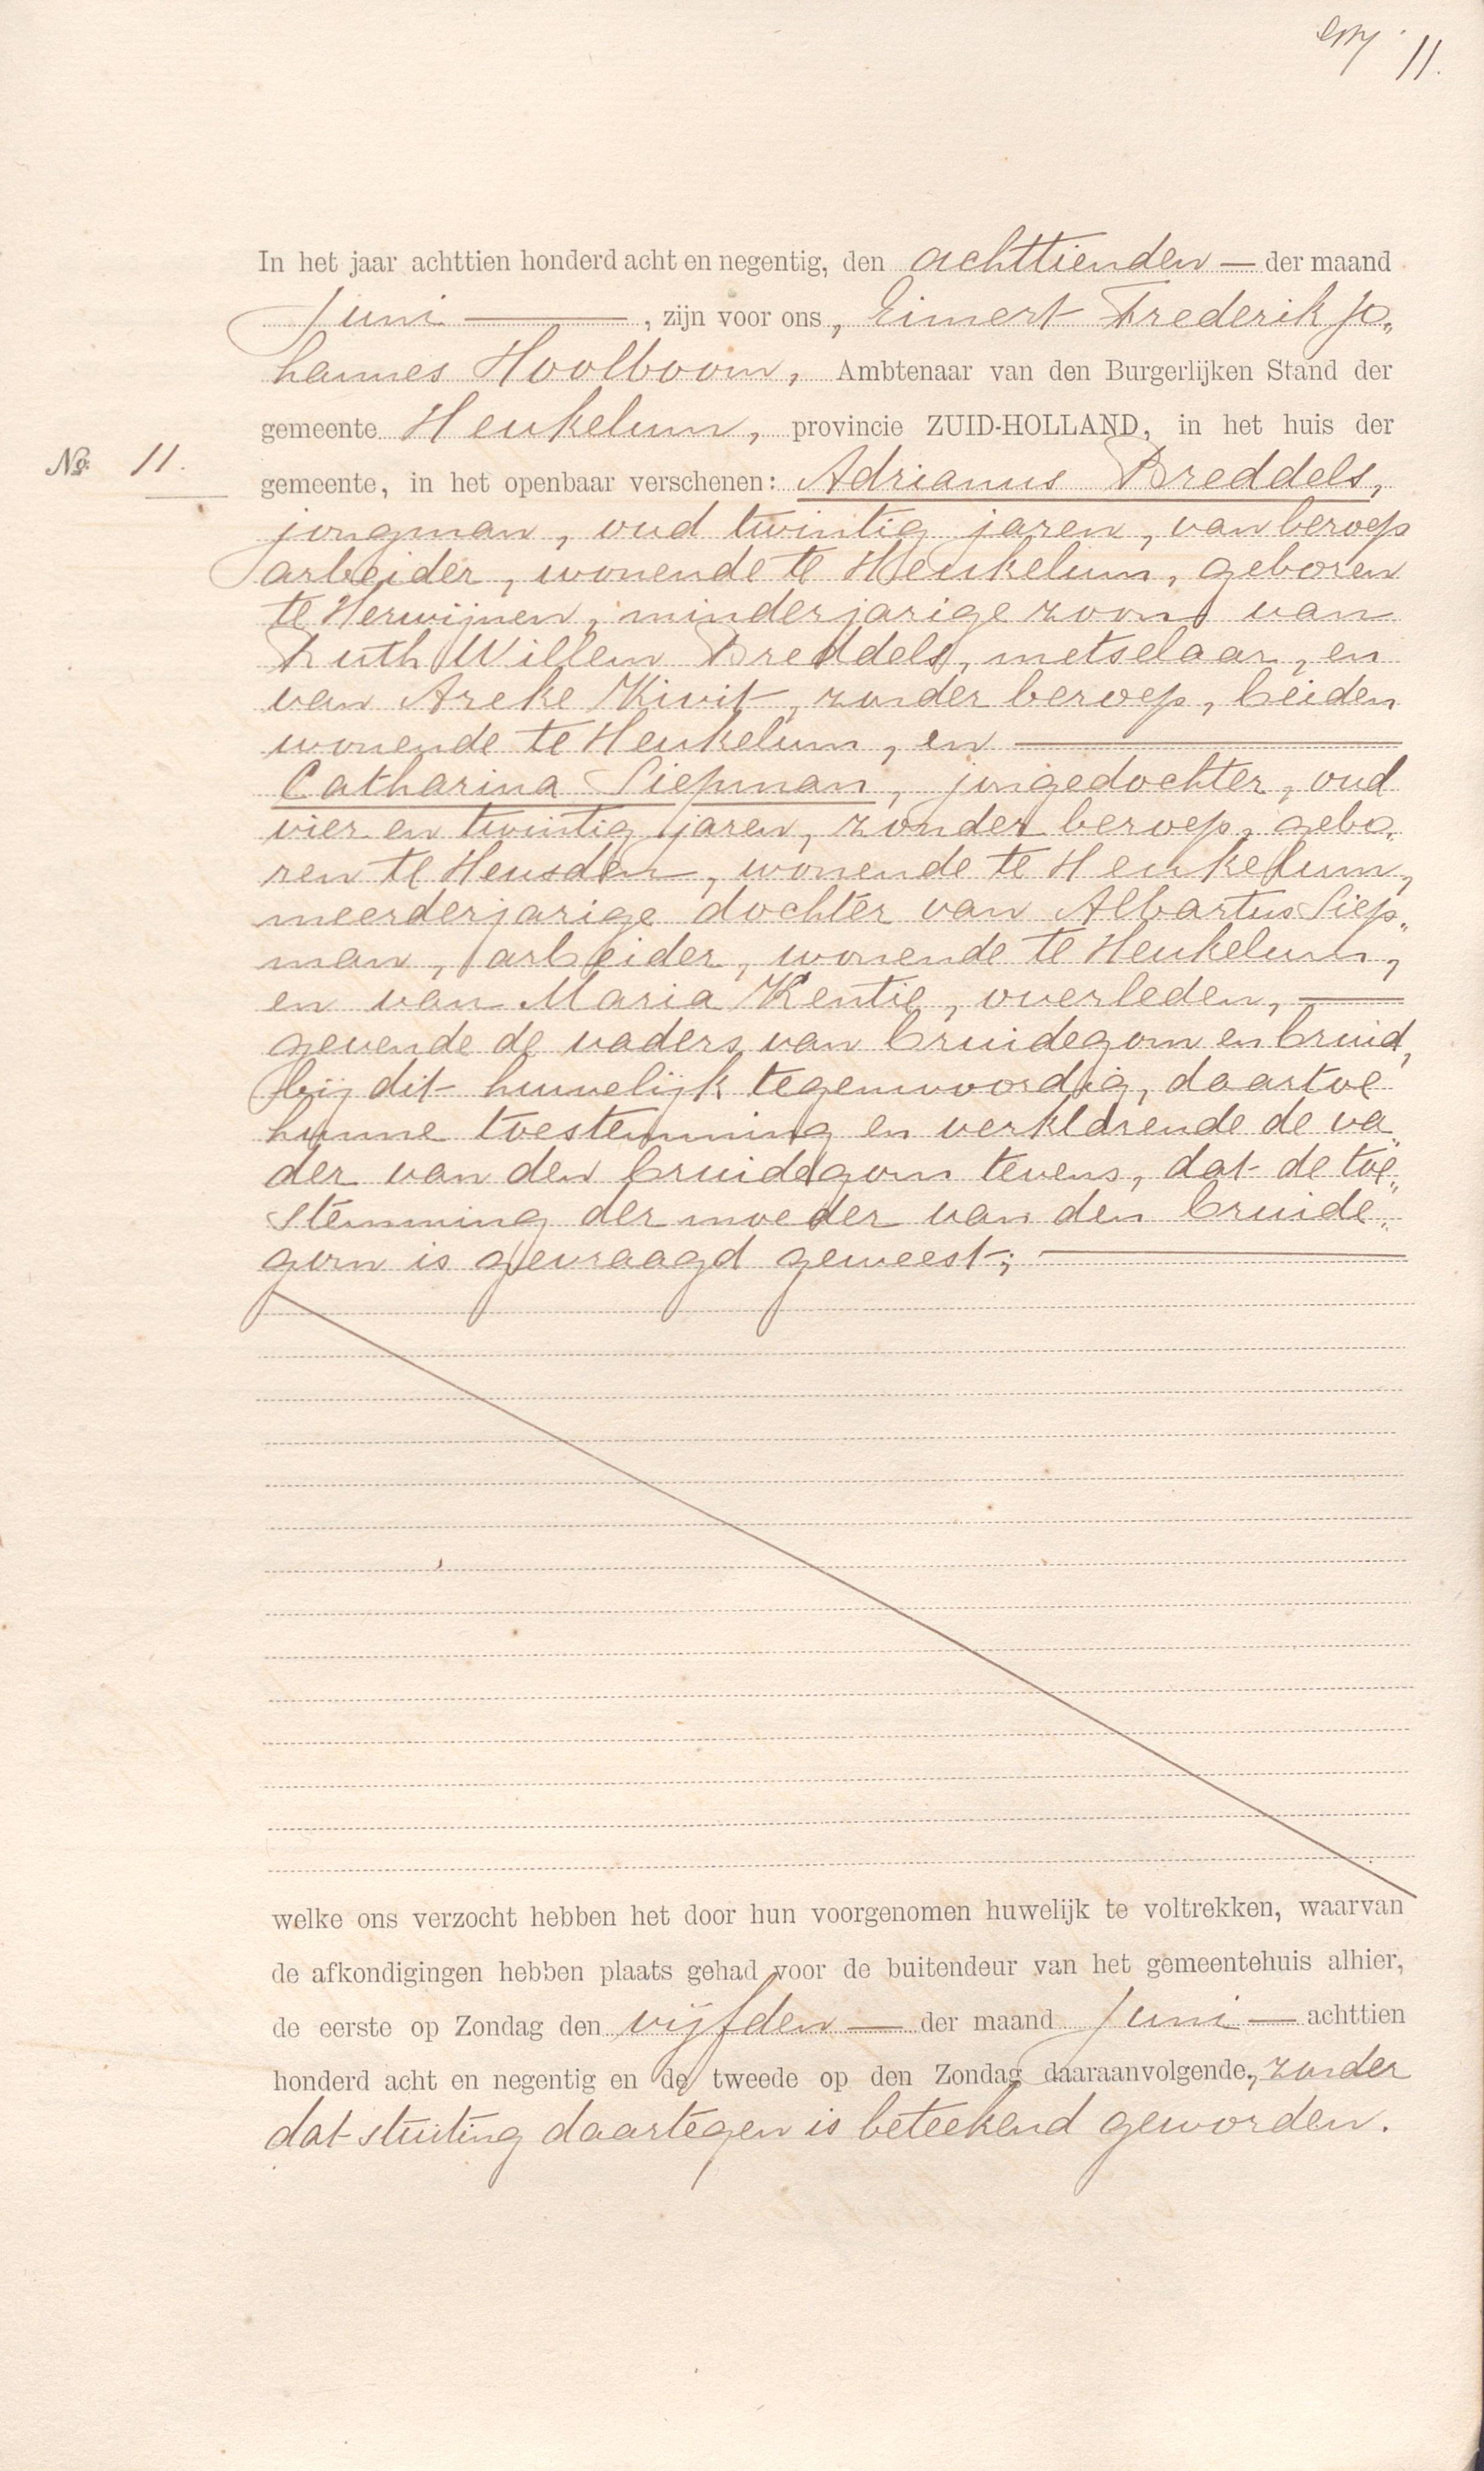 11.
In het jaar achttien honderd acht en negentig, den achttienden — der maand
Juni —, zijn voor ons, Eimert Frederik Jo„
hannes Hoolboom, Ambtenaar van den Burgerlijken Stand der
gemeente Heukelum, provincie ZUID-HOLLAND, in het huis der
No. 11.
gemeente, in het openbaar verschenen: Adrianus Breddels,
jongman, oud twintig jaren, van beroep
arbeider, wonende te Heukelum, geboren
te Herwijnen, minderjarige zoon van
Ruth Willem Breddels, metselaar, en
van Areke Kivit, zonder beroep, beiden
wonende te Heukelum, en —
Catharina Siepman, jongedochter, oud
vier en twintig jaren, zonder beroep, gebo„
ren te Heusden, wonende te Heukelum,
meerderjarige dochter van Albartus Siep„
man, arbeider, wonende te Heukelum,
en van Maria Kentie, overleden, —
gevende de vaders van bruidegom en bruid,
bij dit huwelijk tegenwoordig, daartoe
hunne toestemming en verklarende de va„
der van den bruidegom tevens, dat de toe„
stemming der moeder van den bruide„
gom is gevraagd geweest; —
welke ons verzocht hebben het door hun voorgenomen huwelijk te voltrekken, waarvan
de afkondigingen hebben plaats gehad voor de buitendeur van het gemeentehuis alhier,
de eerste op Zondag den vijfden — der maand Juni — achttien
honderd acht en negentig en de tweede op den Zondag daaraanvolgende, zonder
dat stuiting daartegen is beteekend geworden.